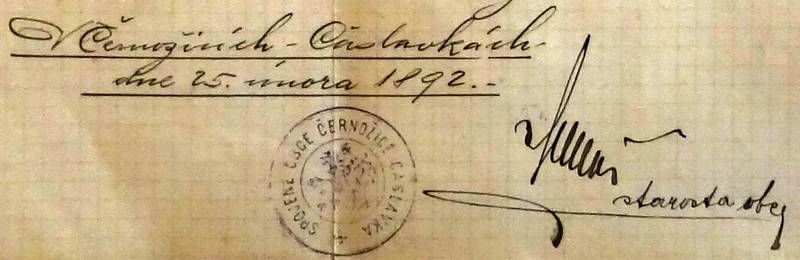 V Černožicích - Čáslavkách
dne 25. února 1892.-
SPOJENÉ OBCE ČERNOŽICE ČÁSLAVKA
starosta obcí